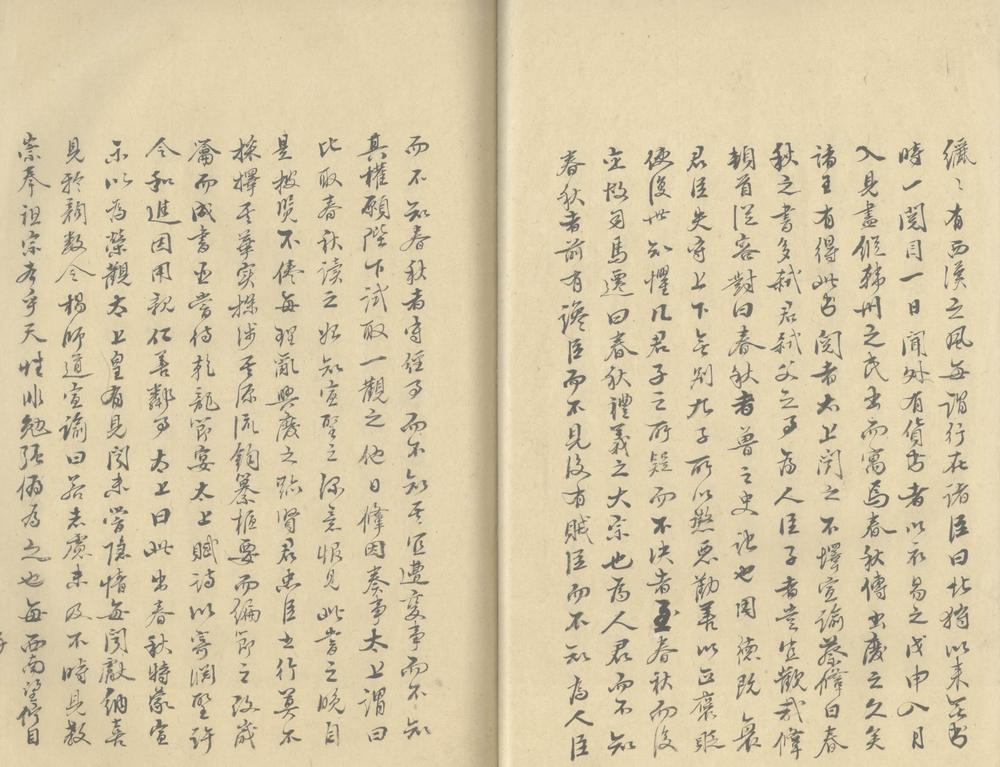 纚〻有西漢之風每謂行在諸臣曰北狩以来無書
時一閱目一日聞外有貨書者以衣易之戊申八月
入見盡徙韓州之民出而寓焉春秋傳出廢之久矣
諸王有得此書閱者太上閱之不懌宣諭蔡鞗曰春
秋之書多弒君弒父之事為人臣子者豈宜歡哉鞗
頓首從容對曰春秋者魯之史記也周德既衰
君臣失守上下無別九子所以懲惡勸善以正褒貶
使後世知懼凡君子之所疑而不決者至春秋而後
定故司馬遷曰春秋禮義之大宗也為人君而不知
春秋者前有讒臣而不見後有賊臣而不知為人臣
而不知春秋者守經事而不知其宜遭變事而不知
其權願陛下試取一觀之他日鞗因奏事太上謂曰
比取春秋讀之始知宣聖之深意恨見此書之晚自
是披覽不倦每理亂興廢之跡賢君忠臣之行莫不
採擇其華實探涉其源流鈎纂樞要而編節之改歲
籥而成書丞嘗待乾龍節宴太上賦詩以寄淵聖許
令和進因用親仁善鄰事太上曰此出春秋特蒙宣
示以為榮觀太上皇有見聞未嘗隱情每聞獻納喜
見於顏數令楊師道宣諭曰若志慮未及不時見教
崇奉祖宗孝乎天性非勉强偏為之也每西南望